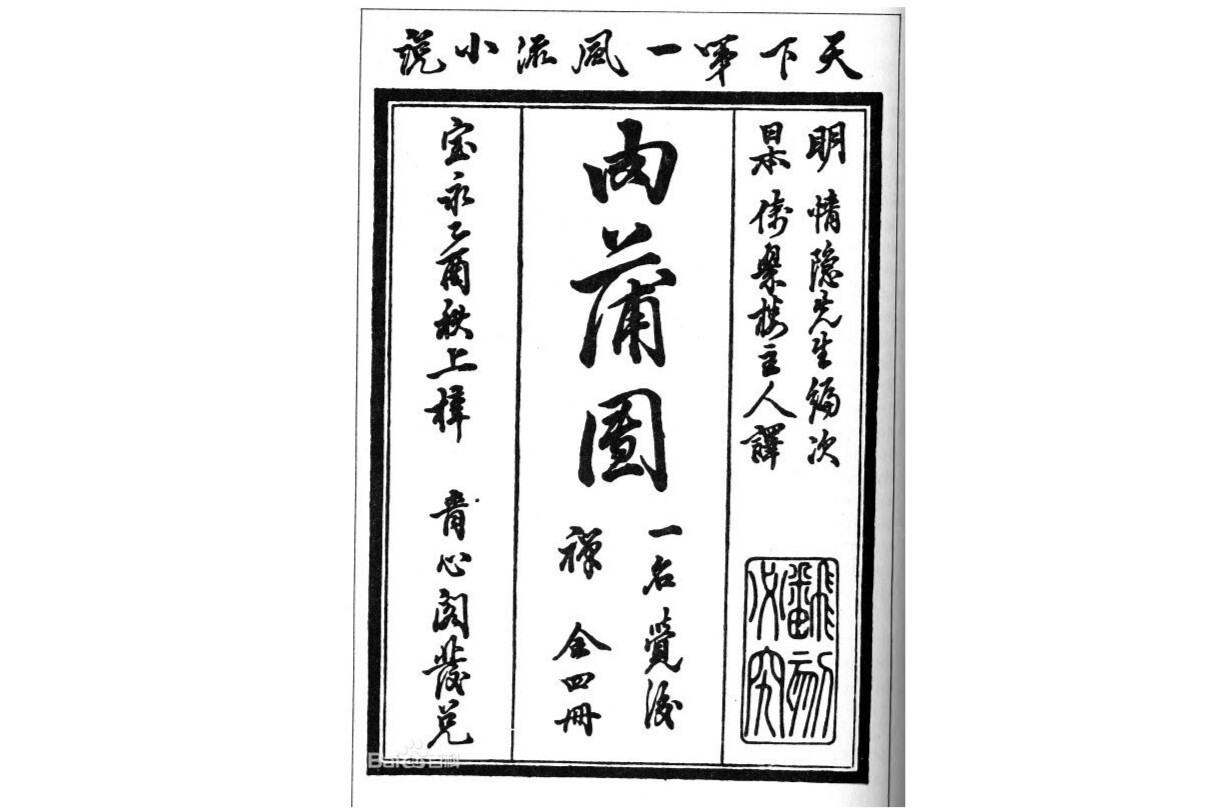 天下第一風流小説
明 情隠先生編次
日本 倚翠楼主人譯
飜刻必究
肉蒲團
一名覺後
禅 全四冊
宝永乙酉秋上梓 青心閣發兌
Baidu百科